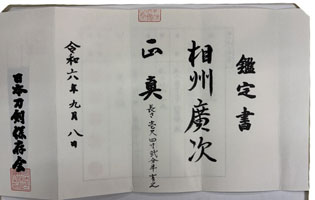 鑑定書
相州廣次
正真
長さ 壱尺四寸弐分半有之
令和六年九月八日
日本刀剣保存会